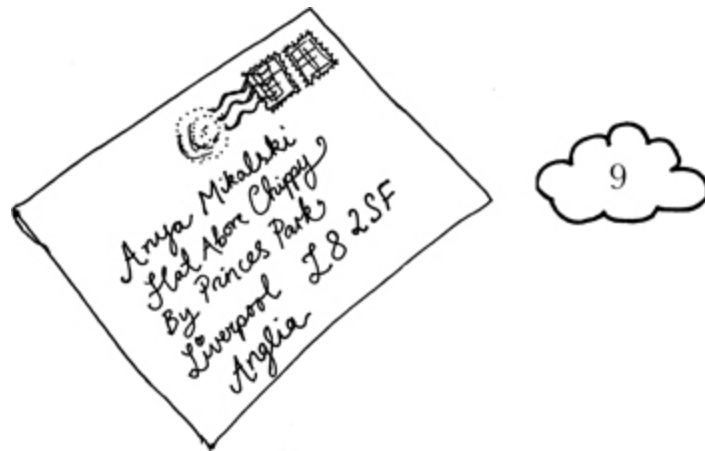 Anya Mikalski
Flat Above Chippy,
By Princes Park,
Liverpool L8 2SF
Anglia
9